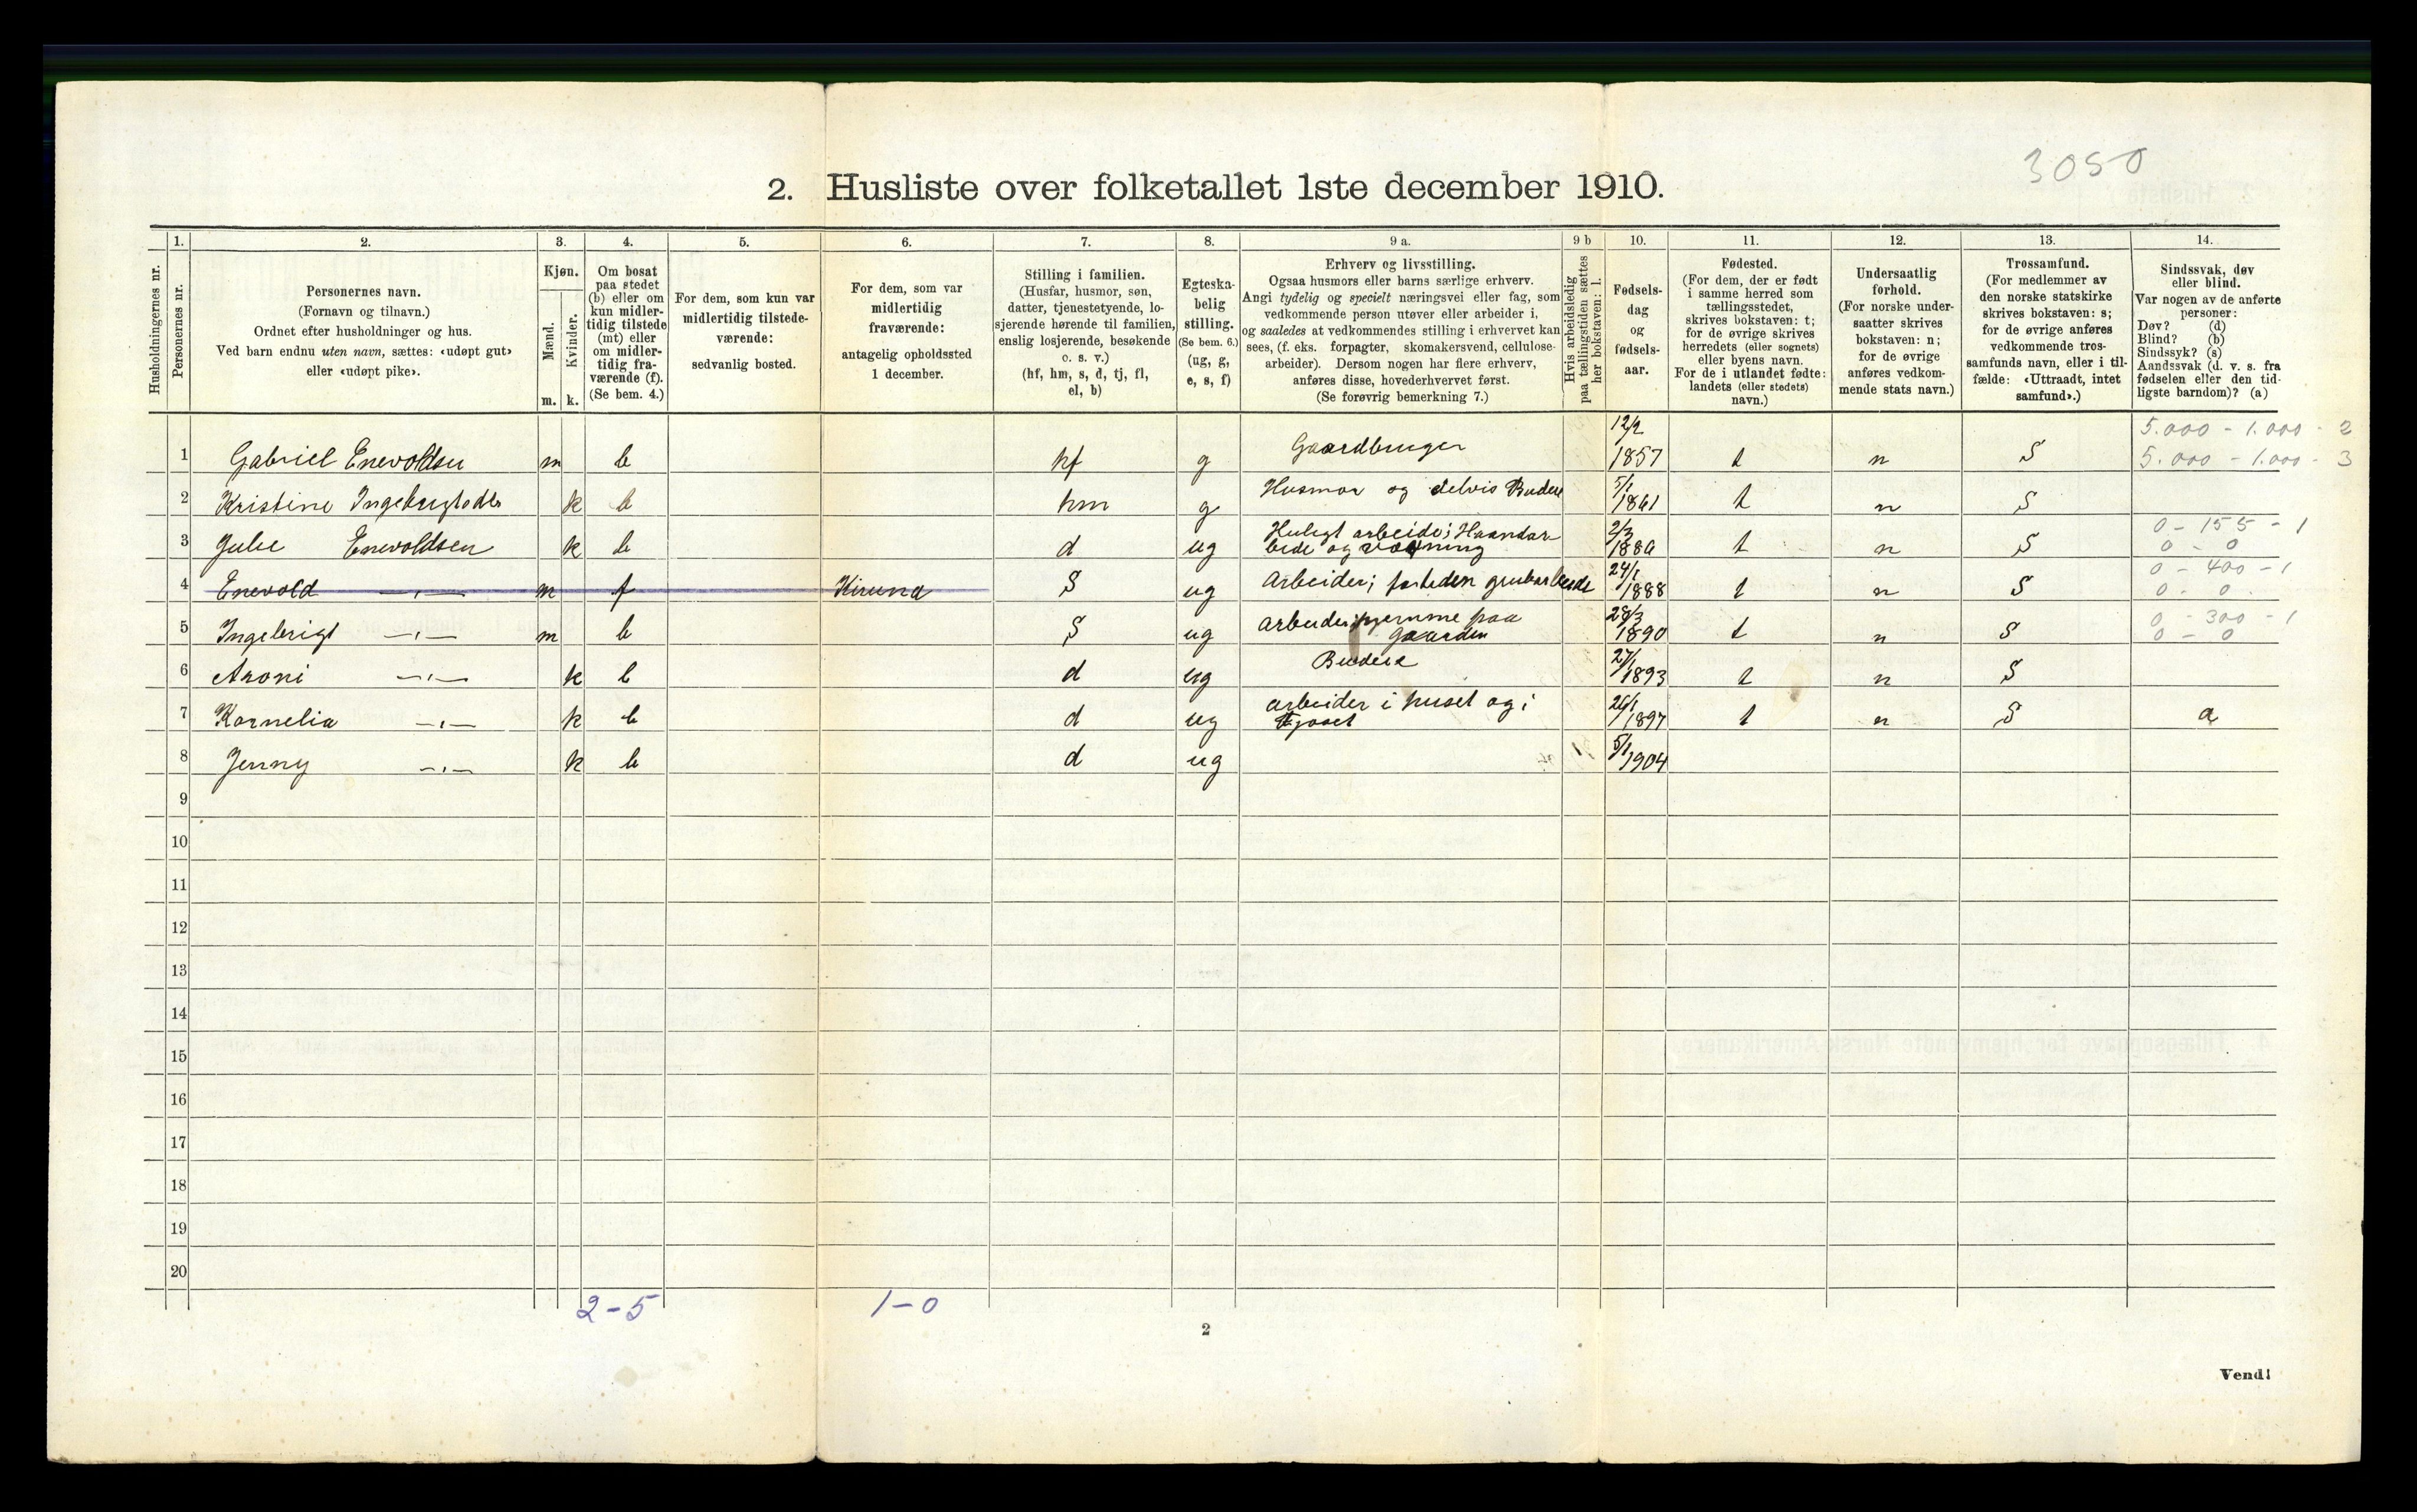 3050
2. Husliste over folketallet 1ste december 1910.
Husholdningernes nr.
1. Personernes nr.
2. Personernes navn.
(Fornavn og tilnavn.)
Ordnet efter husholdninger og hus.
Ved barn endnu uten navn, sættes: «udøpt gut»
eller «udøpt pike».
3. Kjøn.
Mænd. m.
Kvinder. k.
4. Om bosat
paa stedet
(b) eller om
kun midler-
tidig tilstede
(mt) eller
om midler-
tidig fra-
værende (f).
(Se bem. 4.)
5. For dem, som kun var
midlertidig tilstede-
værende:
sedvanlig bosted.
6. For dem, som var
midlertidig
fraværende:
antagelig opholdssted
1 december.
7. Stilling i familien.
(Husfar, husmor, søn,
datter, tjenestetyende, lo-
sjerende hørende til familien,
enslig losjerende, besøkende
o. s. v.)
(hf, hm, s, d, tj, fl,
el, b)
8. Egteska-
belig
stilling.
(Se bem. 6.)
(ug, g,
e, s, f)
9 a. Erhverv og livsstilling.
Ogsaa husmors eller barns særlige erhverv.
Angi tydelig og specielt næringsvei eller fag, som
vedkommende person utøver eller arbeider i,
og saaledes at vedkommendes stilling i erhvervet kan
sees, (f. eks. forpagter, skomakersvend, cellulose-
arbeider). Dersom nogen har flere erhverv,
anføres disse, hovederhvervet først.
(Se forøvrig bemerkning 7.)
9 b Hvis arbeidsledig
paa tællingstiden sættes
her bokstaven: l.
10. Fødsels-
dag
og
fødsels-
aar.
11. Fødested.
(For dem, der er født
i samme herred som
tællingsstedet,
skrives bokstaven: t;
for de øvrige skrives
herredets (eller sognets)
eller byens navn.
For de i utlandet fødte:
landets (eller stedets)
navn.)
12. Undersaatlig
forhold.
(For norske under-
saatter skrives
bokstaven: n;
for de øvrige
anføres vedkom-
mende stats navn.)
13. Trossamfund.
(For medlemmer av
den norske statskirke
skrives bokstaven: s;
for de øvrige anføres
vedkommende tros-
samfunds navn, eller i til-
fælde: «Uttraadt, intet
samfund».)
14. Sindssvak, døv
eller blind.
Var nogen av de anførte
personer:
Døv? (d)
Blind? (b)
Sindssyk? (s)
Aandssvak (d. v. s. fra
fødselen eller den tid-
ligste barndom)? (a)
1 Gabriel Enevoldsen m b hf g Gaardbruger 12/2 1857 t n S 5.000 - 1.000 - 2
5.000 - 1.000 - 3
2 Kristine k b hm g Husmor og delvis Budeie 5/1 1861 t n S
3 Julie Enevoldsen k b d ug Huslgt arbeide; Haandar-
beide og vævning 2/3 t n S 0 - 155 - 1
0 - 0
4 Enevold —"— m f Kiruna S ug Arbeider; grubarbeide 24/1 1888 t n S 0 - 400 - 1
0 - 0
5 Ingebrigt —"— m b S ug arbeider hjemme paa
Gaarden 28/3 1890 t n S 0 - 300 - 1
0 - 0
6 Aroni —"— k b d ug Budeie 27/1 1893 t n S
7 Kornelia —"— k b d ug arbeider i huset og i
fjøset 26/1 1897 t n S a
8 Jenny —"— k b d ug 5/1 1904
9
10
11
12
13
14
15
16
17
18
19
20
2-5 1-0
2
Vend!